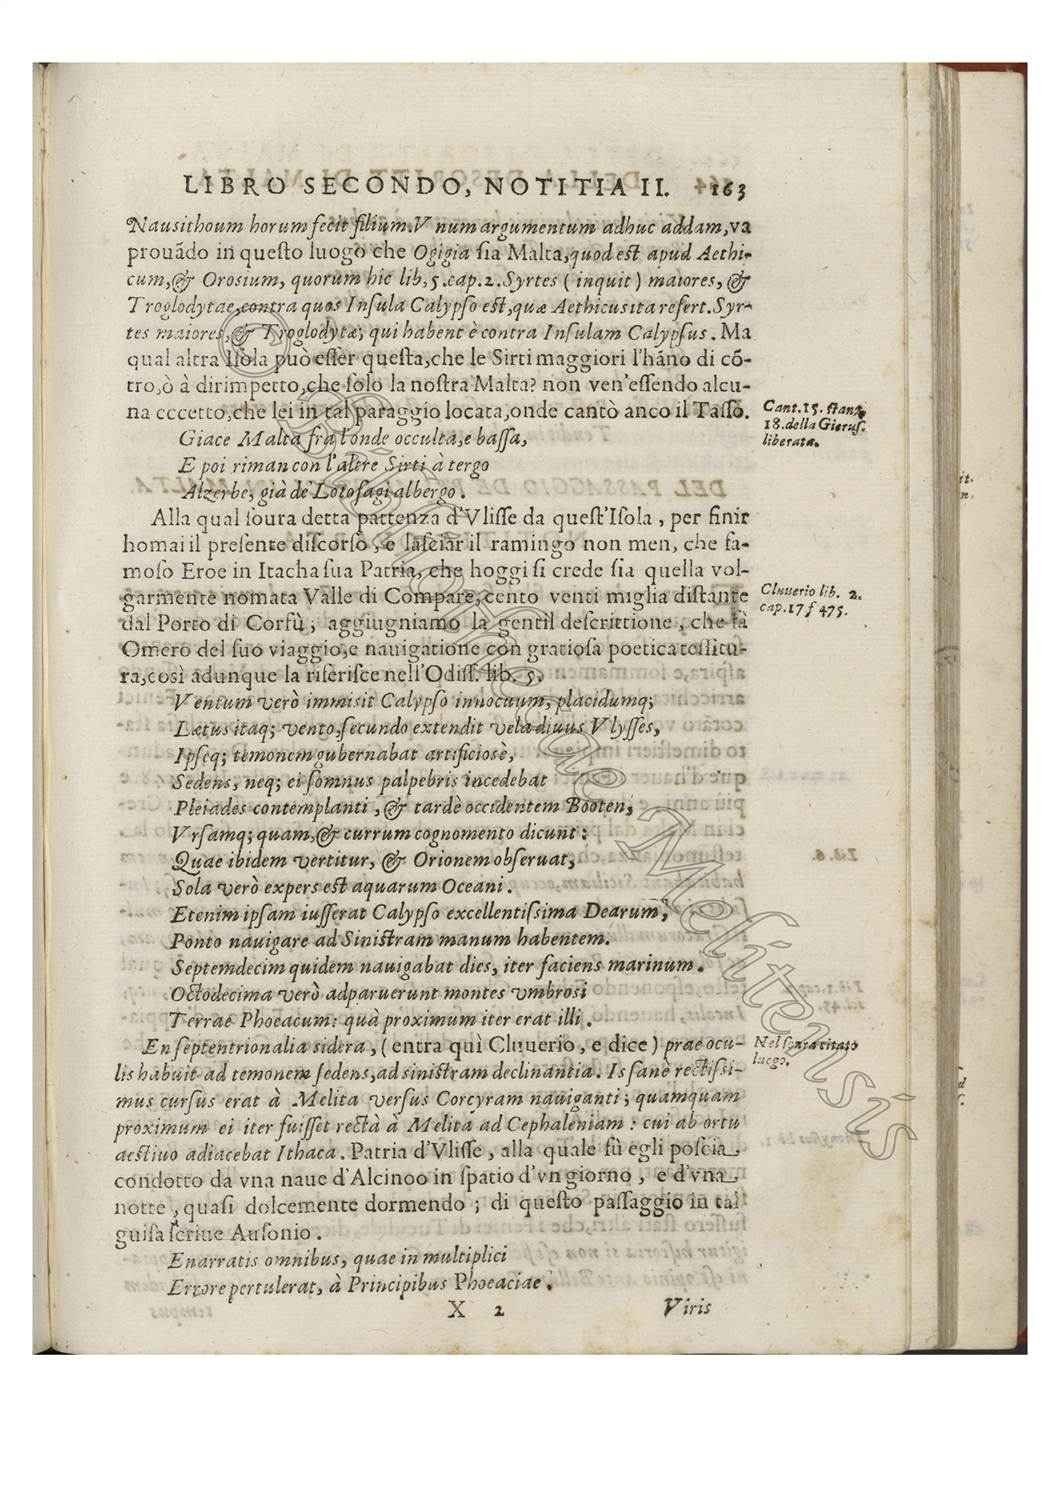 LIBRO SECONDO, NOTITIA II. 163
Nausithoum horum fecit filium. Vnum argumentum adhuc addam, va
prouãdo in questo luogo che Ogigia sia Malta, quod est apud Aethi-
cum, & Orosium, quorum hic lib. 5. cap. 2. Syrtes ( inquit ) maiores, &
Troglodytae, contra quos Insula Calypso est, quæ Aethicus ita refert. Syr-
tes maiores, & Troglodytæ, qui habent è contra Insulam Calypsus. Ma
qual altra Isola può esser questa, che le Sirti maggiori l'hãno di cõ-
tro, ò à dirimpetto, che solo la nostra Malta? non ven'essendo alcu-
na eccetto, che lei in tal paraggio locata, onde cantò anco il Tasso.
Cant. 15. stanz.
18. della Gierus.
liberata.
Giace Malta fra l'onde occulta, e bassa,
E poi riman con l'altre Sirti à tergo
Alzerbe, già de' Lotofagi albergo.
Alla qual soura detta pattenza d'Vlisse da quest'Isola, per finir
homai il presente discorso, e lasciar il ramingo non men, che fa-
moso Eroe in Itacha sua Patria, che hoggi si crede sia quella vol-
garmente nomata Valle di Compare, cento venti miglia distante
Cluuerio lib. 2.
cap. 17 f 475.
dal Porto di Corfù; aggiugniamo la gentil descrittione, che fà
Omero del suo viaggio, e nauigatione con gratiosa poetica tessitu-
ra, così adunque la riferisce nell'Odiss. lib. 5.
Ventum verò immisit Calypso innocuum, placidumq;
Lætus itaq; vento, secundo extendit vela diuus Vlysses,
Ipseq; temonem gubernabat artificiosè,
Sedens, neq; ei somnus palpebris incedebat
Pleiades contemplanti, & tardè occidentem Booten,
Vrsamq; quam, & currum cognomento dicunt:
Quae ibidem vertitur, & Orionem obseruat,
Sola verò expers est aquarum Oceani.
Etenim ipsam iusserat Calypso excellentissima Dearum,
Ponto nauigare ad Sinistram manum habentem.
Septemdecim quidem nauigabat dies, iter faciens marinum.
Octodecima verò adparuerunt montes vmbrosi
Terrae Phoeacum: quà proximum iter erat illi.
En septentrionalia sidera, ( entra quì Cluuerio, e dice ) prae ocu-
Nel sopra citato
luogo.
lis habuit ad temonem sedens, ad sinistram declinantia. Is sanè rectissi-
mus cursus erat à Melita versus Corcyram nauiganti; quamquam
proximum ei iter fuisset rectà à Melita ad Cephaleniam: cui ab ortu
aestiuo adiacebat Ithaca. Patria d'Vlisse, alla quale fù egli poscia
condotto da vna naue d'Alcinoo in spatio d'vn giorno, e d'vna
notte, quasi dolcemente dormendo; di questo passaggio in tal
guisa scriue Ausonio.
Enarratis omnibus, quae in multiplici
Errore pertulerat, à Principibus Phoeaciae.
X 2 Viris
© Bibliotecae Melitensis